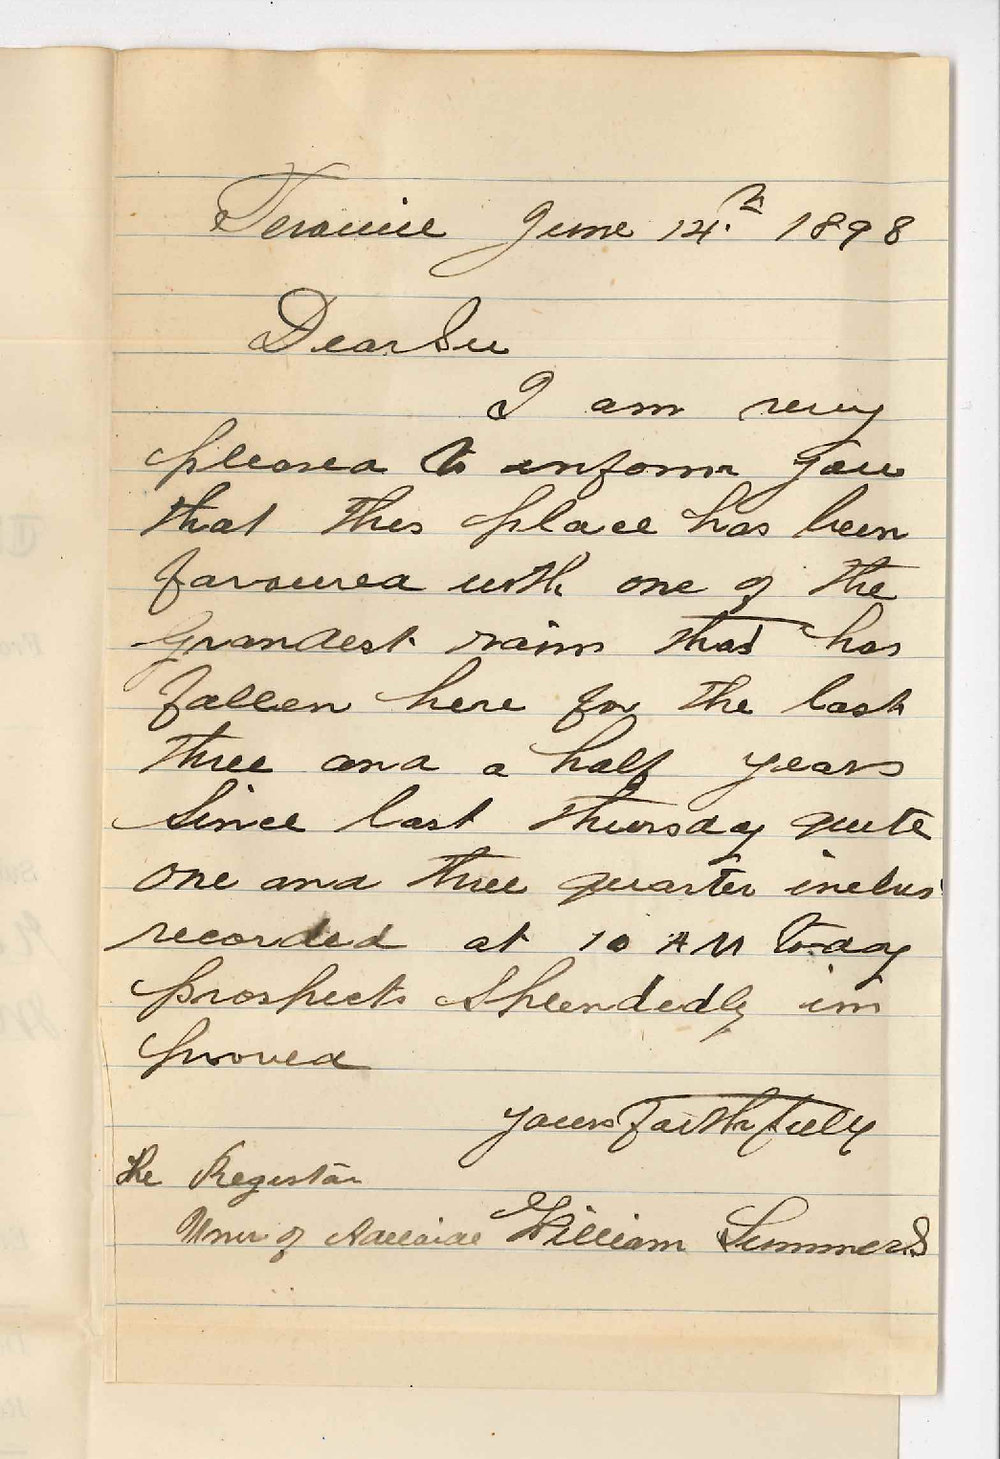 Terowie June 14th 1898
Dear Sir
I am very
pleased to inform you
that this place has been
favoured with one of the
Grandest rains that has
fallen here for the last
three and a half years
Since last thursday quite
one and three quarter inches
recorded at 10 AM today
prospects Splendedly im
proved
yours faithfully
The Registar
Univer of Adelaide William Summers